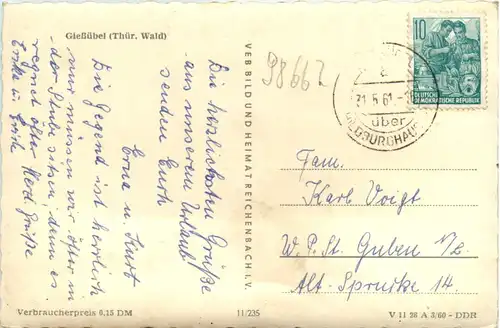 Gießübel (Thür. Wald)
Die herzlichsten Grüße
aus unserem Urlaub
senden Euch
Erna u. Kurt
Die Gegend ist herrlich
nur müssen wir öfter in
der Stube sitzen, denn es
regnet öfter. Herzl. Grüße
VEB BILD UND HEIMAT REICHENBACH I. V.
98662
10
DEUTSCHE
DEMOKRATISCHE REPUBLIK
über
HILDBURGHAUSEN
Fam.
Karl Voigt
W. P. St. Guben N/L.
Alt-Sprucke 14.
Verbraucherpreis 0,15 DM
11/235
V 11 28 A 3/60 - DDR